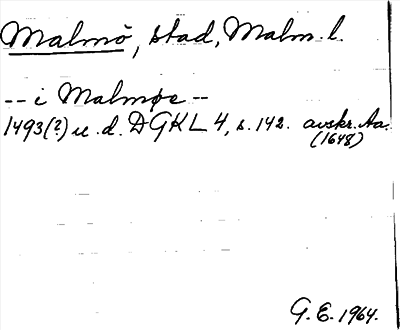 Malmö, stad, Malm. l.
-- i Malmøe --
1493(?) u. d. DGKL 4, s. 142. avskr. Aa.
(1648)
G. E. 1964.